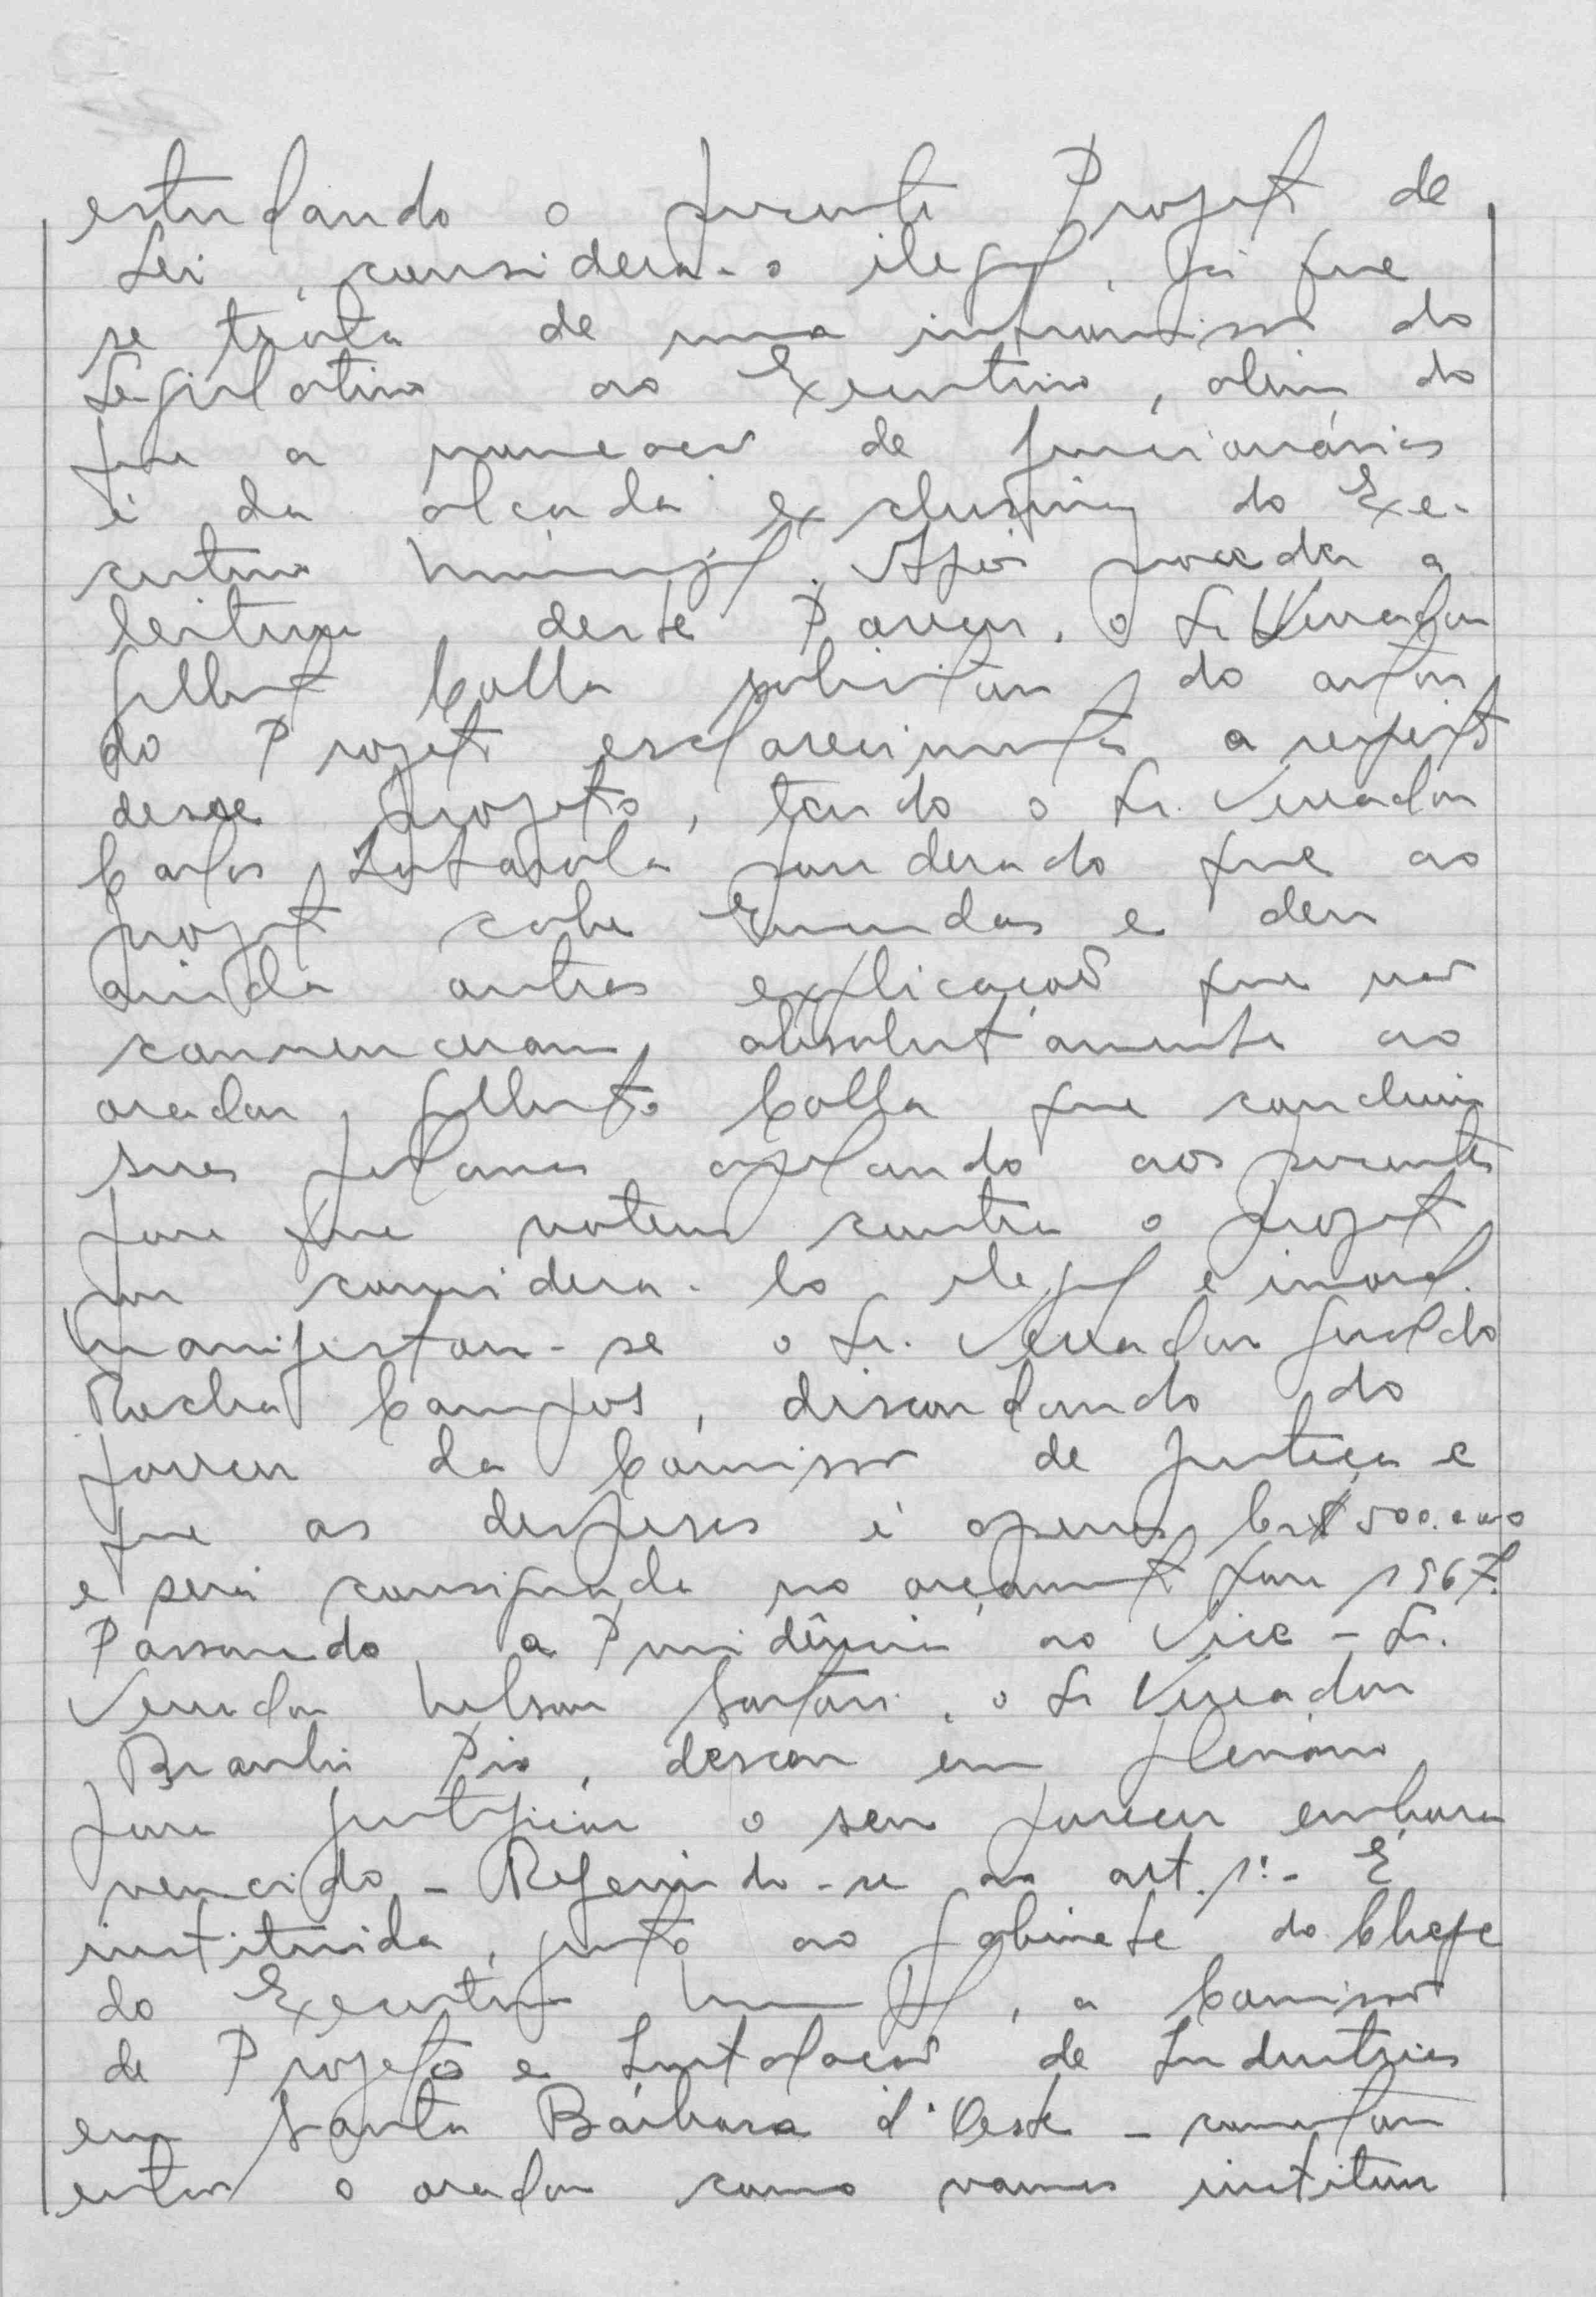 estudando o presente Projeto de
Lei, considera-o ilegal, já que
se trata de uma intromissão do
Legislativo ao Executivo, além do
que a nomeação de funcionários
é da alçada exclusiva do Exe-
cutivo Municipal. Após proceder a
leitura deste Parecer, o Sr Vereador
Gilberto Colla solicitou do autor
do Projeto esclarecimentos a respeito
desse projeto, tendo o Sr. Vereador
Carlos ponderado que ao
projeto cabe Emendas e deu
ainda outras explicações que não
convenceram absolutamente ao
orador Gilberto Colla que concluiu
suas palavras apelando aos presentes
para que votem contra o projeto
por considera-lo ilegal e imoral.
Manifestou-se o Sr. Vereador Geraldo
Rocha Campos, discordando do
parecer da Comissão de Justiça e
que as despesas é apenas Cr$ 500.000
e será consignada no orçamento para 1967.
Passando a Presidência ao Vice - Sr.
Vereador Nelson Sartori, o Sr Vereador
Braulio Pio, desceu em plenário
para justificar o seu parecer embora
vencido - Referindo-se ao art. 1º - É
instituida, junto ao Gabinete do Chefe
do Executivo Municipal, a Comissão
de Projetos e Instalação de Industrias
em Santa Bárbara d'Oeste - comentou
então o orador como vamos instituir